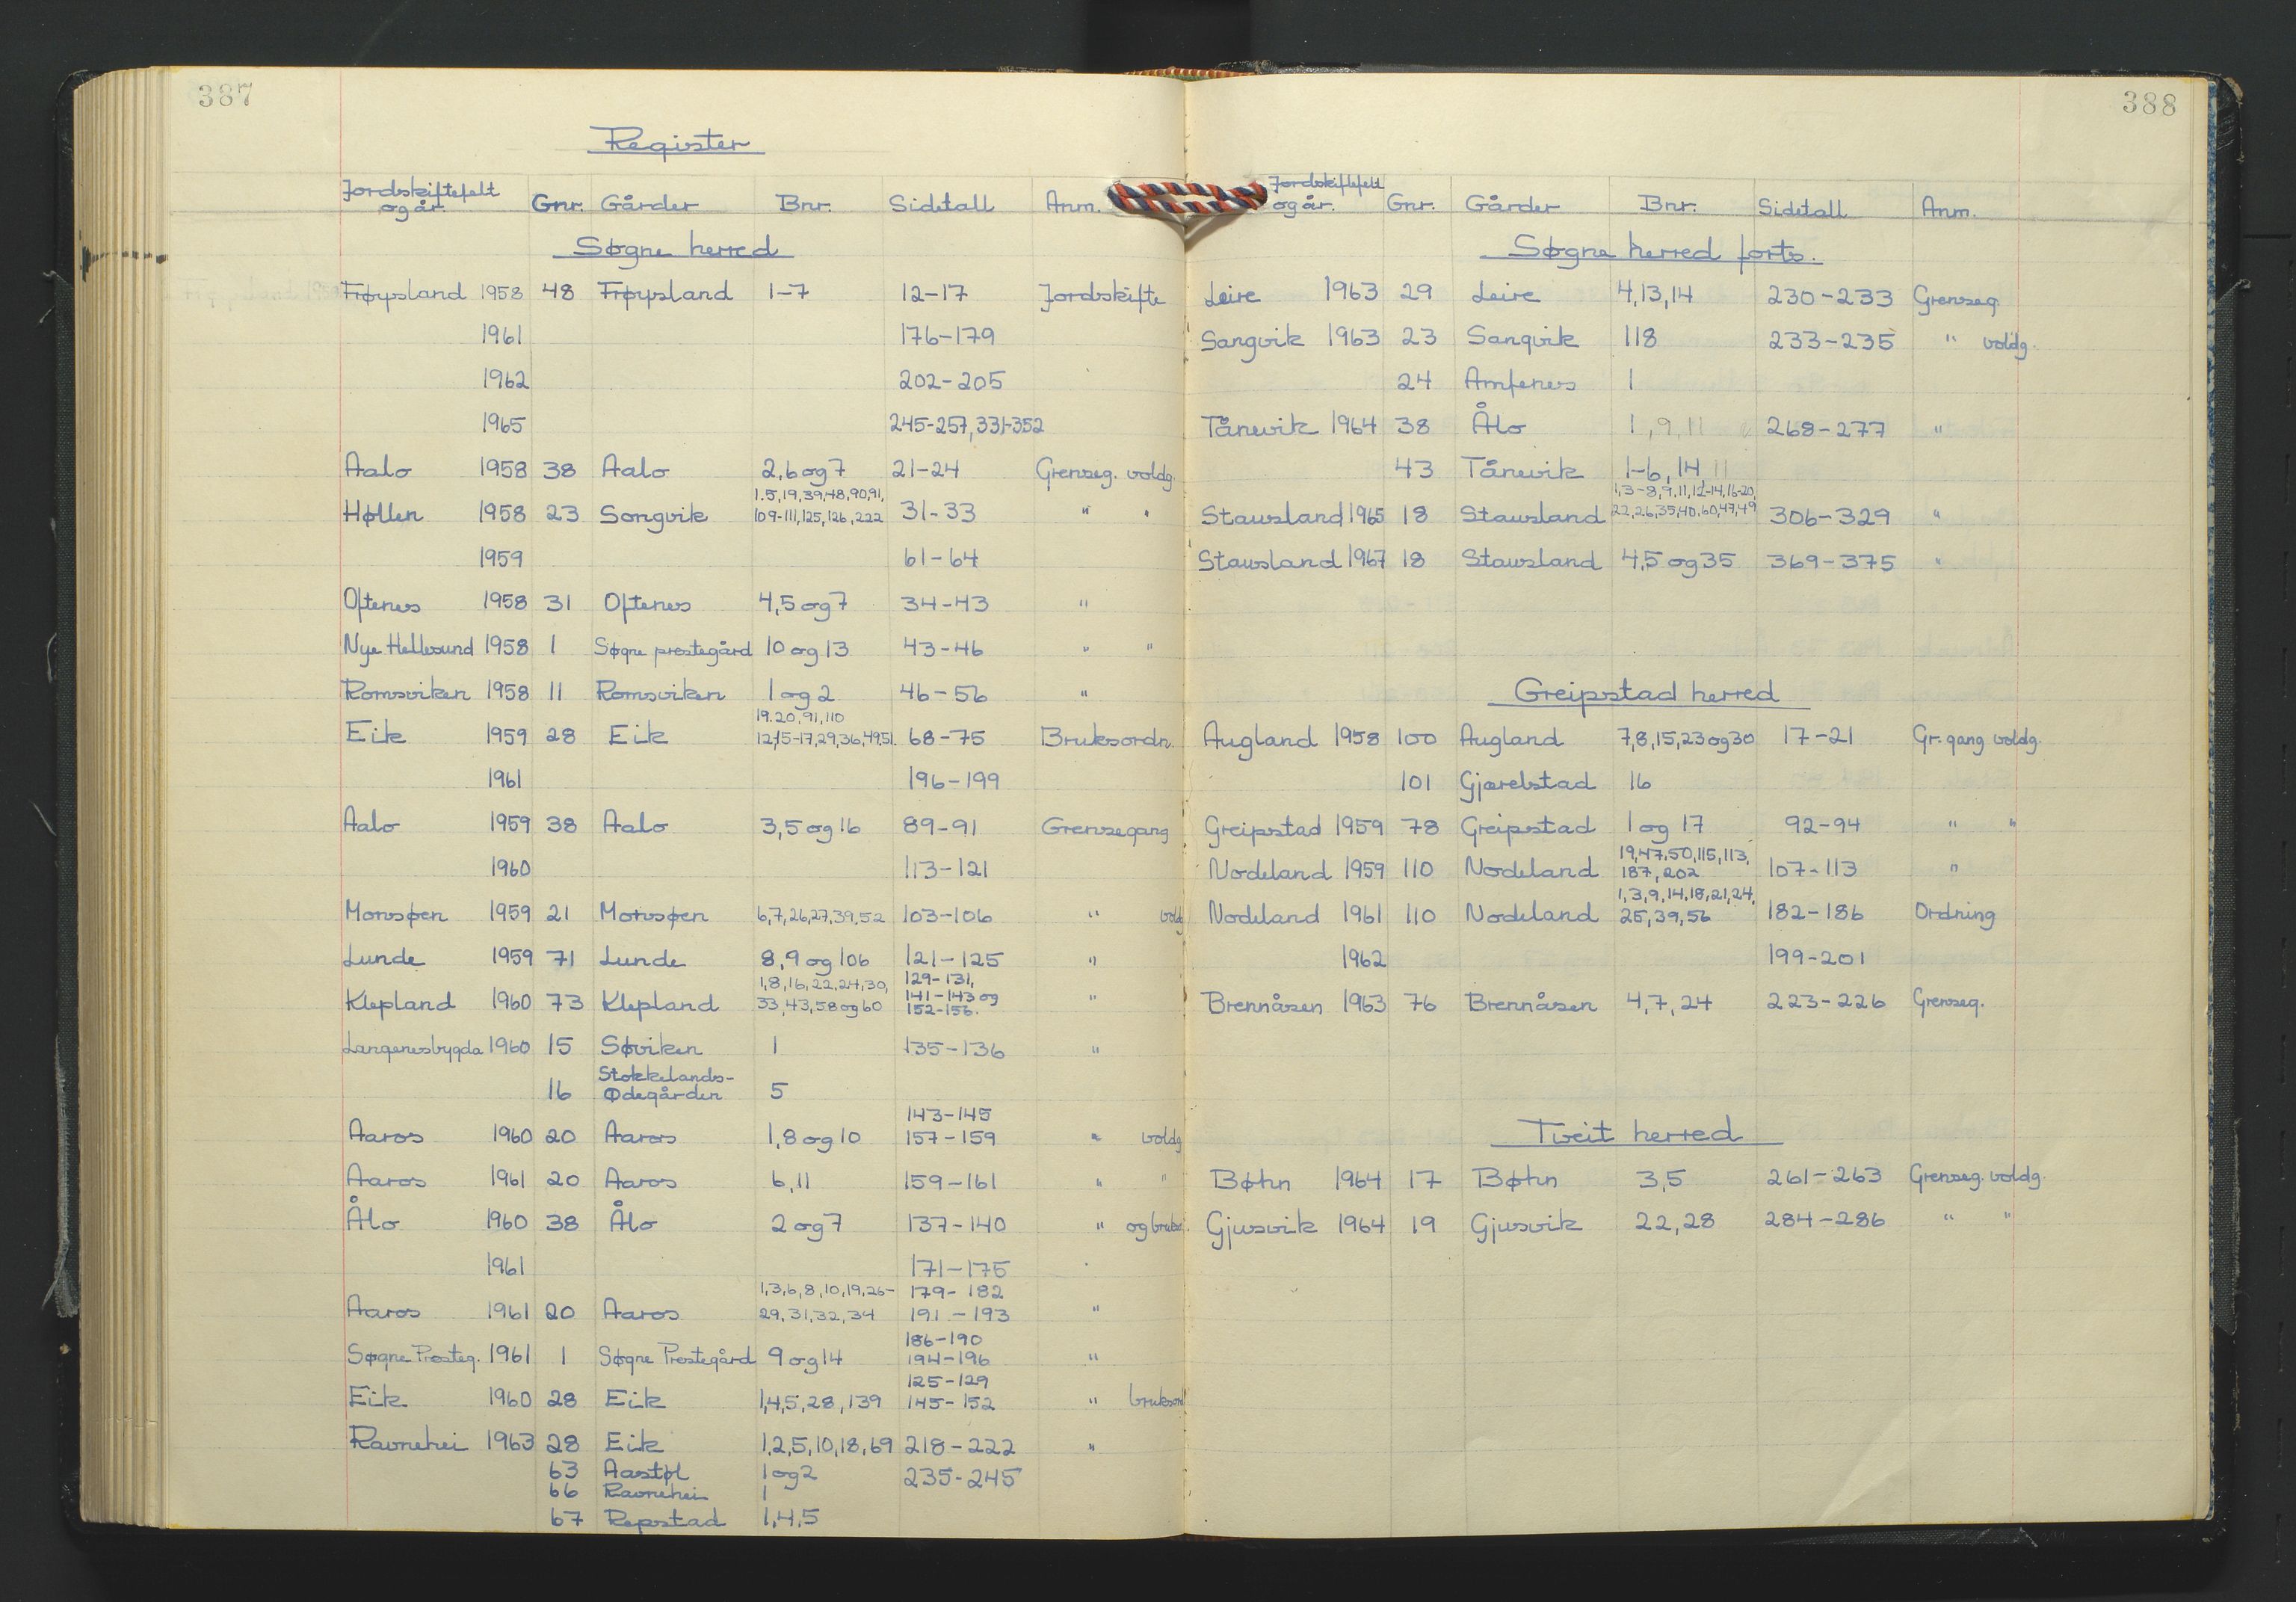 387
Register
Jordskiftefelt
og år. Gnr. Gårder Bnr. Sidetall Anm.
Søgne herred
Frøysland 1958 48 Frøysland 1-7 12-17 Jordskifte
1961 176-179
1962 202-205
1965 245-257, 331-352
Aalo 1958 38 Aalo 2,6 og 7 21-24 Grenseg. voldg.
1.5,19,39,48,90,91,
Høllen 1958 23 Songvik 109-111,125,126,222 31-33 " "
1959 61-64
Oftenes 1958 31 Oftenes 4,5 og 7 34-43 "
Nye Hellesund 1958 1 Søgne prestegård 10 og 13 43-46 " "
Romsviken 1958 11 Romsviken 1 og 2 46-56 "
19.20,91,110
Eik 1959 28 Eik 12,15-17,29,36,49,51. 68-75 Bruksordn.
1961 196-199
Aalo 1959 38 Aalo 3,5 og 16 89-91 Grensegang
1960 113-121
Monsøen 1959 21 Monsøen 6,7,26,27,39,52 103-106 " voldg
Lunde 1959 71 Lunde 8,9 og 106 121-125 "
1,8,16,22,24,30, 129-131,
Klepland 1960 73 Klepland 33,43,58 og 60 141-143 og "
152-156.
Langenesbygda 1960 15 Søviken 1 135-136 "
16 Stokkelands-
Ødegården 5
143-145
Aaros 1960 20 Aaros 1,8 og 10 157-159 " voldg
Aaros 1961 20 Aaros 6,11 159-161 " "
Ålo 1960 38 Ålo 2 og 7 137-140 " og bruks.
1961 171-175
1,3,6,8,10,19,26- 179-182
Aaros 1961 20 Aaros 29,31,32,34 191-193 "
186-190
Søgne Presteg. 1961 1 Søgne Prestegård 9 og 14 194-196 "
125-129
Eik 1960 28 Eik 1,4,5,28,139 145-152 " bruksord
Ravnehei 1963 28 Eik 1,2,5,10,18,69 218-222 "
63 Aastøl 1 og 2 235-245
66 Ravnehei 1
67 Repstad 1,4,5
388
Jordskiftefelt
og år. Gnr. Gårder Bnr. Sidetall Anm.
Søgne herred forts.
Leire 1963 29 Leire 4,13,14 230-233 Grenseg.
Sangvik 1963 23 Sangvik 118 233-235 " voldg.
24 Amfenes 1
Tånevik 1964 38 Ålo 1,9,11 268-277 "
43 Tånevik 1-6,14,11
1,3-8,9,11,12-14,16-20,
Stausland 1965 18 Stausland 22,26,35,40,60,47,49 306-329 "
Stausland 1967 18 Stausland 4,5 og 35 369-375 "
Greipstad herred
Augland 1958 100 Augland 7,8,15,23 og 30 17-21 Gr.gang voldg.
101 Gjærelstad 16
Greipstad 1959 78 Greipstad 1 og 17 92-94 " "
19,47,50,115,113,
Nodeland 1959 110 Nodeland 187,202 107-113 "
1,3,9,14,18,21,24,
Nodeland 1961 110 Nodeland 25,39,56 182-186 Ordning
1962 199-201
Brennåsen 1963 76 Brennåsen 4,7,24 223-226 Grenseg.
Tveit herred
Bøhn 1964 17 Bøhn 3,5 261-263 Grenseg. voldg.
Gjusvik 1964 19 Gjusvik 22,28 284-286 " "